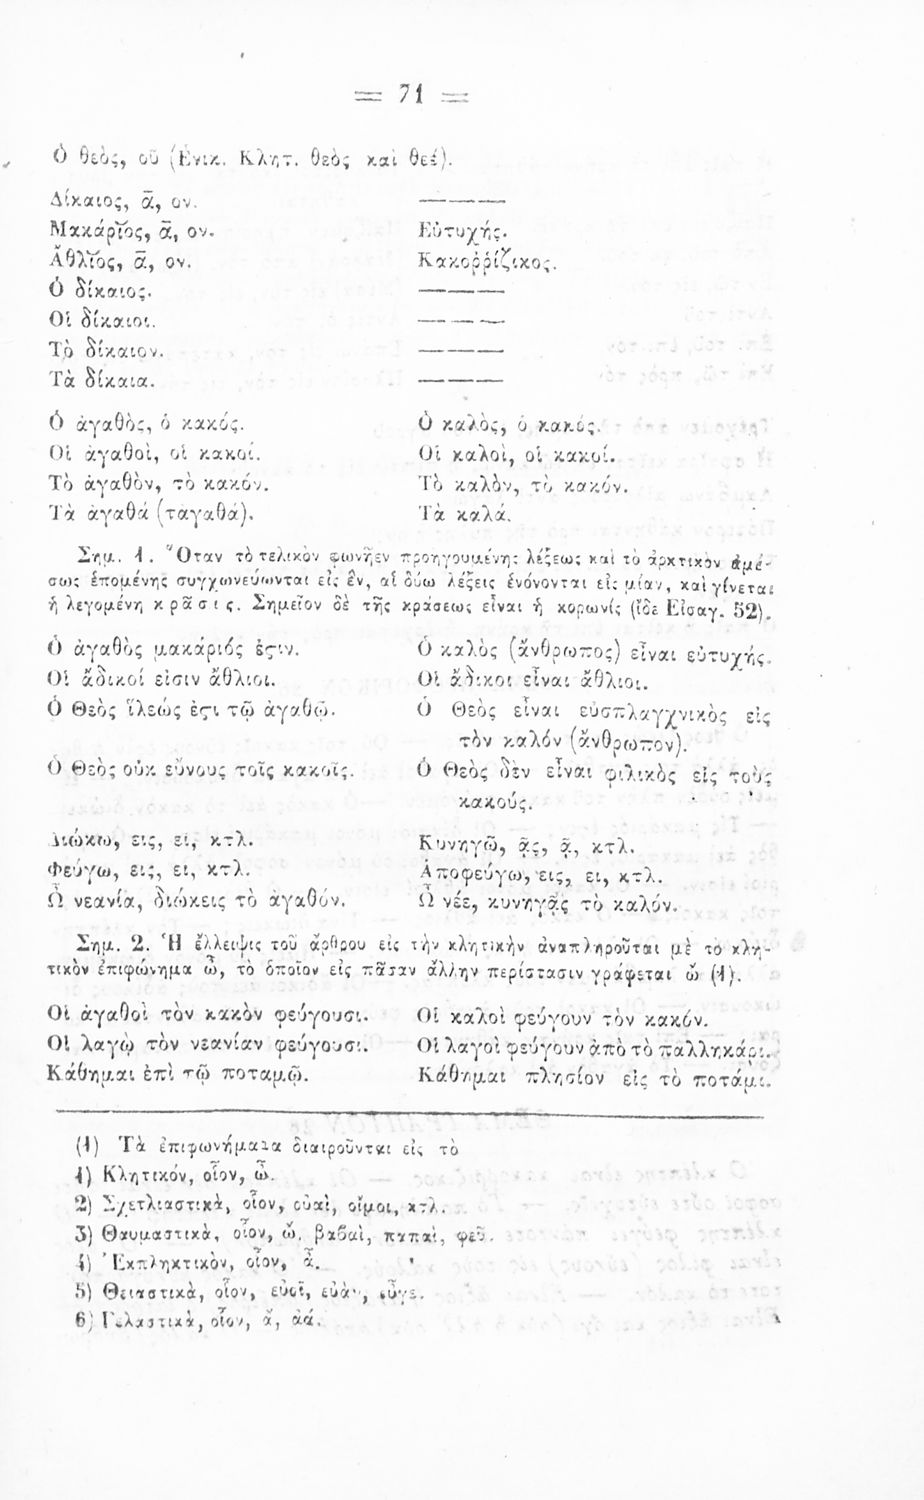 = 71 =
Ὁ θεὸς, οῦ (Ἑνικ. Κλητ. θεὸς καὶ θεέ).
Δίκαιος, ᾱ, ον. ———
Μακάριος, ᾱ, ον. Εὐτυχής.
Ἄθλιος, ᾱ, ον. Κακοῤῥίζικος.
Ὁ δίκαιος. ———
Οἱ δίκαιοι. ———
Τὸ δίκαιον. ———
Τὰ δίκαια. ———
Ὁ ἀγαθὸς, ὁ κακός. Ὁ καλὸς, ὁ κακός.
Οἱ ἀγαθοὶ, οἱ κακοί. Οἱ καλοὶ, οἱ κακοί.
Τὸ ἀγαθὸν, τὸ κακόν. Τὸ καλὸν, τὸ κακόν.
Τὰ ἀγαθά (τἀγαθά). Τὰ καλά.
Σημ. 1. Ὅταν τὸ τελικὸν φωνῆεν προηγουμένης λέξεως καὶ τὸ ἀρκτικὸν ἀμέ-
σως ἑπομένης συγχωνεύωνται εἰς ἓν, αἱ δύω λέξεις ἑνόνονται εἰς μίαν, καὶ γίνεται
ἡ λεγομένη κρᾶσις. Σημεῖον δὲ τῆς κράσεως εἶναι ἡ κορωνίς (ἴδε Εἰσαγ. 52).
Ὁ ἀγαθὸς μακάριός ἐϛιν. Ὁ καλὸς (ἄνθρωπος) εἶναι εὐτυχής.
Οἱ ἄδικοί εἰσιν ἄθλιοι. Οἱ ἄδικοι εἶναι ἄθλιοι.
Ὁ Θεὸς ἵλεώς ἐϛι τῷ ἀγαθῷ. Ὁ Θεὸς εἶναι εὐσπλαγχνικὸς εἰς
τὸν καλόν (ἄνθρωπον).
Ὁ Θεὸς οὐκ εὔνους τοῖς κακοῖς. Ὁ Θεὸς δὲν εἶναι φιλικὸς εἰς τοὺς
κακούς.
Διώκω, εις, ει, κτλ. Κυνηγῶ, ᾷς, ᾷ, κτλ.
Φεύγω, εις, ει, κτλ. Ἀποφεύγω, εις, ει, κτλ.
Ὦ νεανία, διώκεις τὸ ἀγαθόν. Ὦ νέε, κυνηγᾷς τὸ καλόν.
Σημ. 2. Ἡ ἔλλειψις τοῦ ἄρθρου εἰς τὴν κλητικὴν ἀναπληροῦται μὲ τὸ κλη-
τικὸν ἐπιφώνημα ὦ, τὸ ὁποῖον εἰς πᾶσαν ἄλλην περίστασιν γράφεται ὤ (1).
Οἱ ἀγαθοὶ τὸν κακὸν φεύγουσι. Οἱ καλοὶ φεύγουν τὸν κακόν.
Οἱ λαγῲ τὸν νεανίαν φεύγουσι. Οἱ λαγοὶ φεύγουν ἀπὸ τὸ παλληκάρι.
Κάθημαι ἐπὶ τῷ ποταμῷ. Κάθημαι πλησίον εἰς τὸ ποτάμι.
(1) Τὰ ἐπιφωνήματα διαιροῦνται εἰς τὸ
1) Κλητικόν, οἷον, ὦ.
2) Σχετλιαστικὰ, οἷον, οὐαὶ, οἴμοι, κτλ.
3) Θαυμαστικὰ, οἷον, ὤ, βαβαὶ, παπαὶ, φεῦ.
4) Ἐκπληκτικὸν, οἷον, ἆ.
5) Θειαστικὰ, οἷον, εὐοῖ, εὐὰν, εὖγε.
6) Γελαστικὰ, οἷον, ἅ, ἁά.